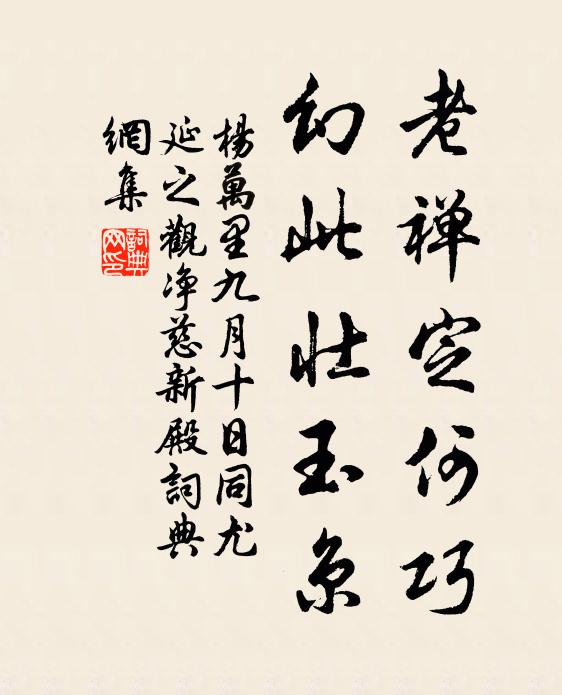 老禅定何巧
幻此壮玉京
楊萬里九月十日同尤
延之觀净慈新殿詞典
網集
詞典
网印